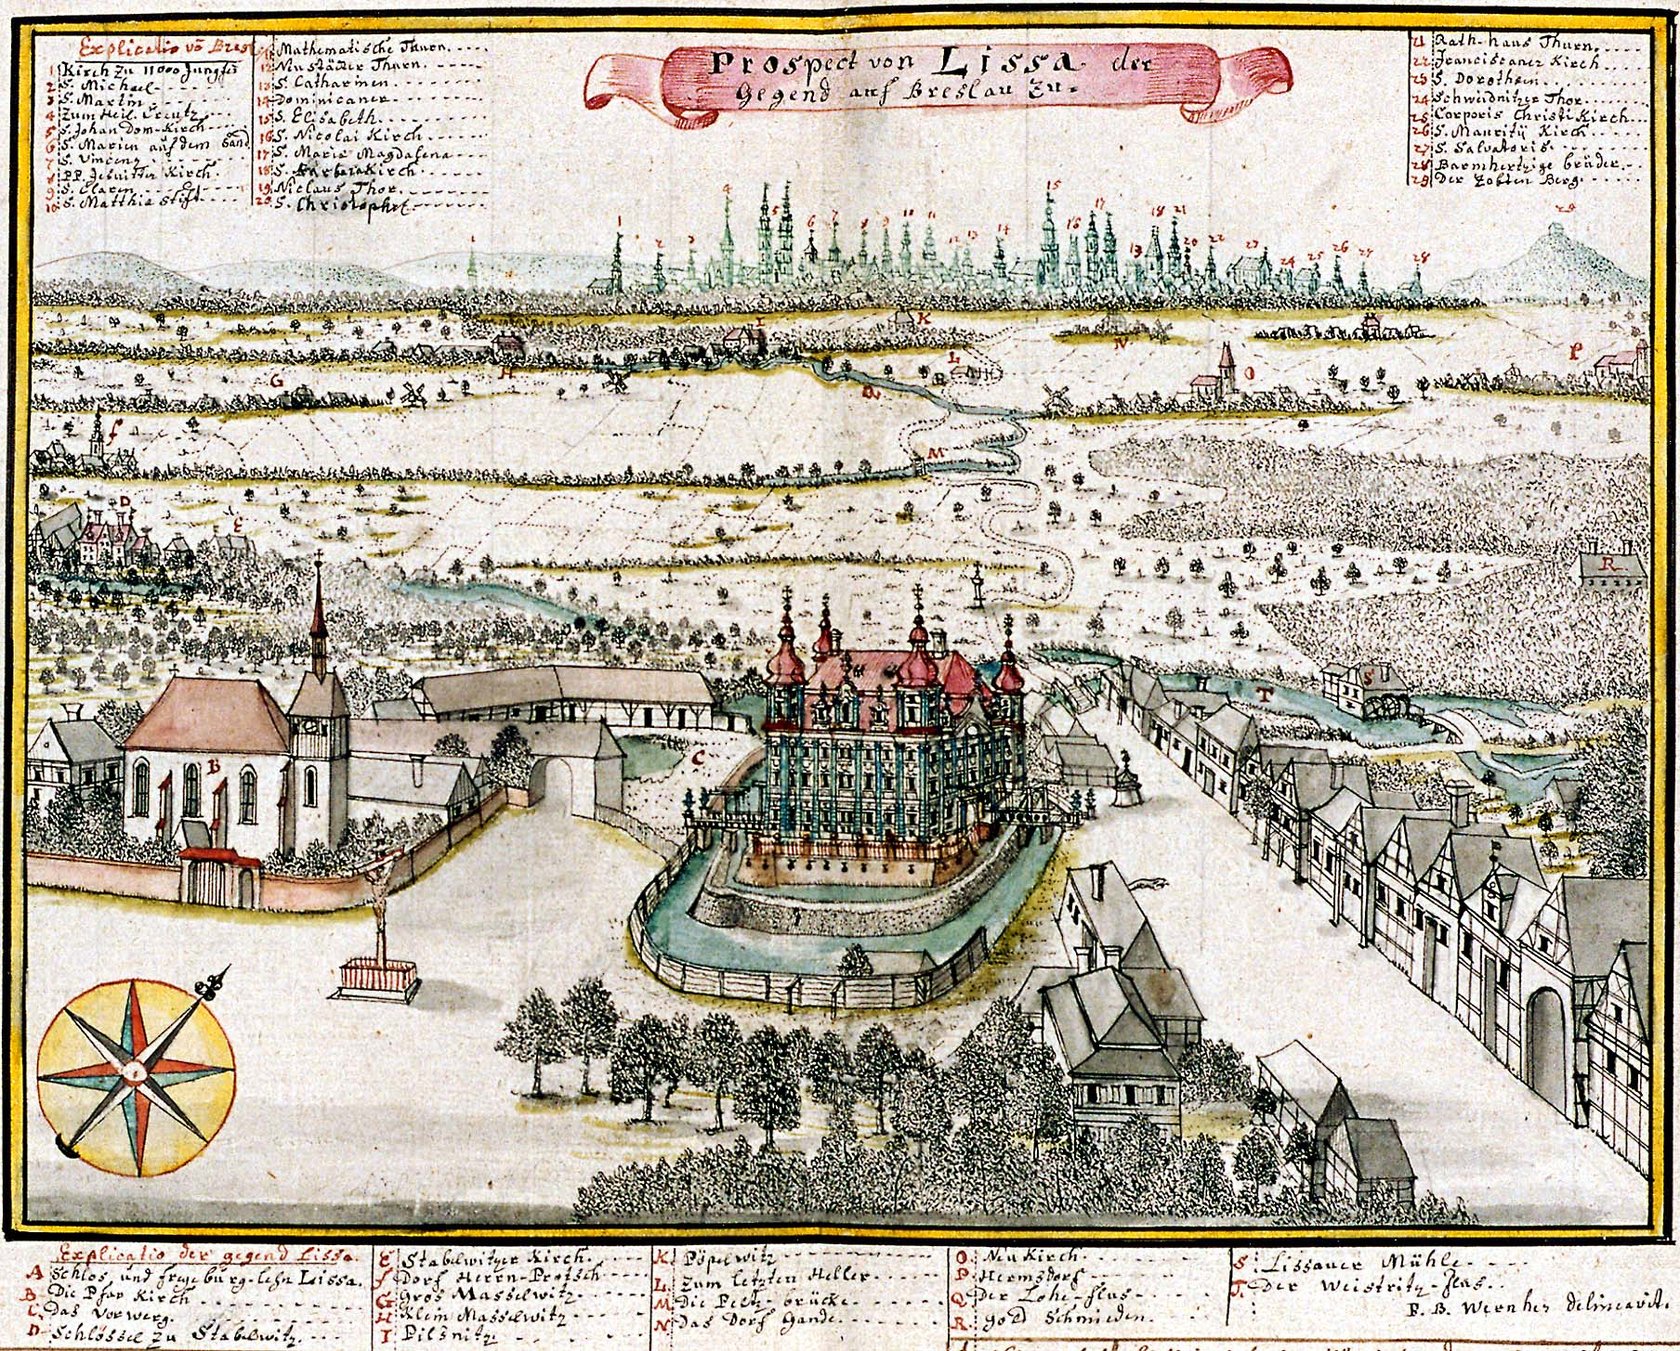 Prospect von Lissa der
Gegend auf Breslau Zu.
Explicatio vō Bresl
1 Kirch zu 11000 Jungfer
2 S. Michael
3 S. Martin
4 Zum Heil. Creutz
5 S. Johan Dom-Kirch
6 S. Marien auf dem Sand
7 S. Vincenz
8 PP. Jesuitter Kirch
9 S. Claren
10 S. Matthia Stift
Mathematische Thurn.
12 Neustätter Thurn.
13 S. Catharinen
14 Dominicaner
15 S. Elisabeth
16 S. Nicolai Kirch
17 S. Maria Magdalena
18 S. Barbara Kirch
19 Niclaus Thor
20 S. Christophel
21 Rath-haus Thurn
22 Franciscaner Kirch
23 S. Dorothein
24 Schweidnitzer Thor
25 Corporis Christi Kirch
26 S. Mauritij Kirch
27 S. Salvatoris
28 Barmhertzige brüder
29 Der Zobten Berg
Explicatio der gegend Lissa
A Schlos und freye burg-lehn Lissa.
B Die Pfar Kirch
C Das Vorwerg
D Schlössel zu Stabelwitz
E Stabelwitzer Kirch
f Dorf Herrn-Protsch
G Gros Masselwitz
H Klein Masselwitz
I Pilsnitz
K Pöpelwitz
L Zum letzten Heller
M Die Peltz-brücke
N Das Dorf Gande
O Neukirch
P Hermsdorf
Q Der Lohe-flus
R Gold Schmieden
S Lissauer Mühle
T Der Weistritz-flus
F. B. Wernher delineavit